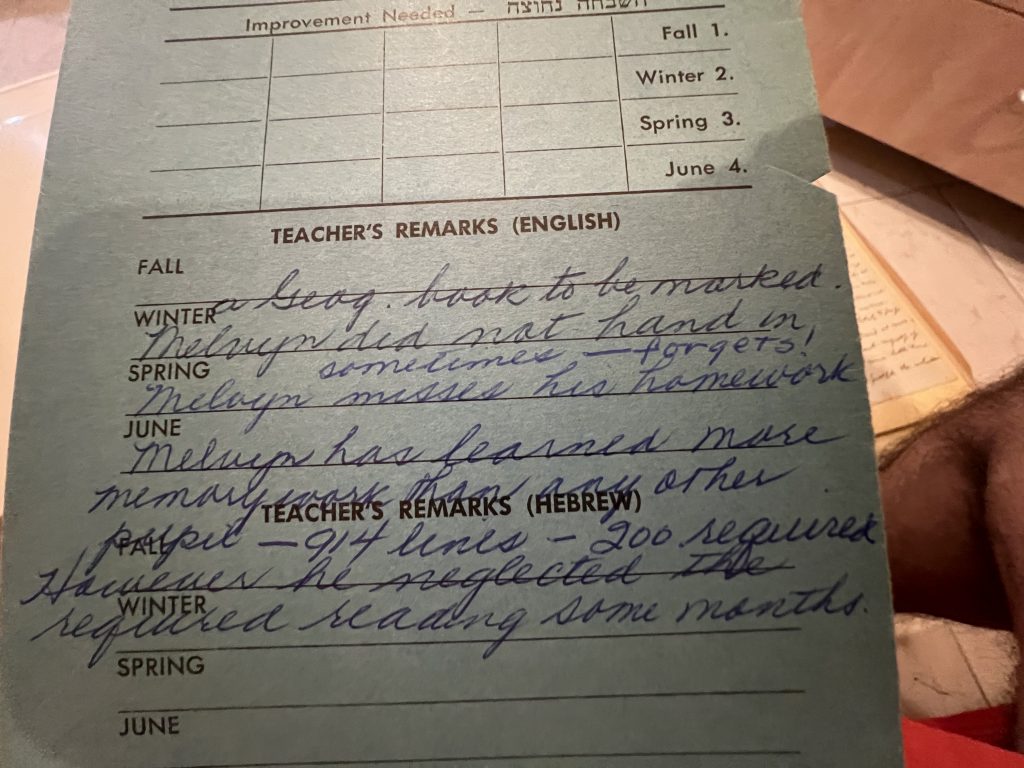 Improvement Needed — השבחה נחוצה
Fall 1.
Winter 2.
Spring 3.
June 4.
TEACHER'S REMARKS (ENGLISH)
FALL
a Geog. book to be marked.
WINTER
Melvyn did not hand in
sometimes — forgets!
SPRING
Melvyn misses his homework
JUNE
Melvyn has learned more
memory work than any other
TEACHER'S REMARKS (HEBREW)
pupil — 914 lines — 200 required
FALL
However he neglected the
WINTER
required reading some months.
SPRING
JUNE